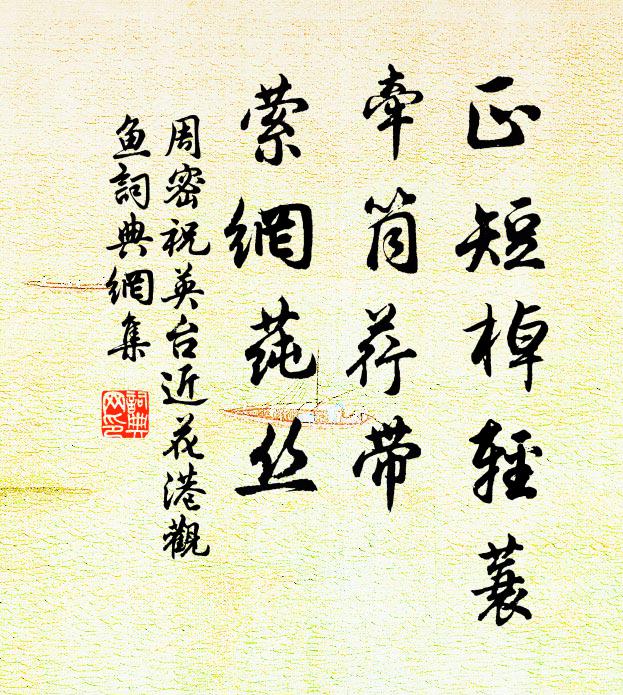 正短棹輕蓑
牽筒荇带
縈網莼丝
周密祝英台近花港觀
鱼詞典網集
詞典网印